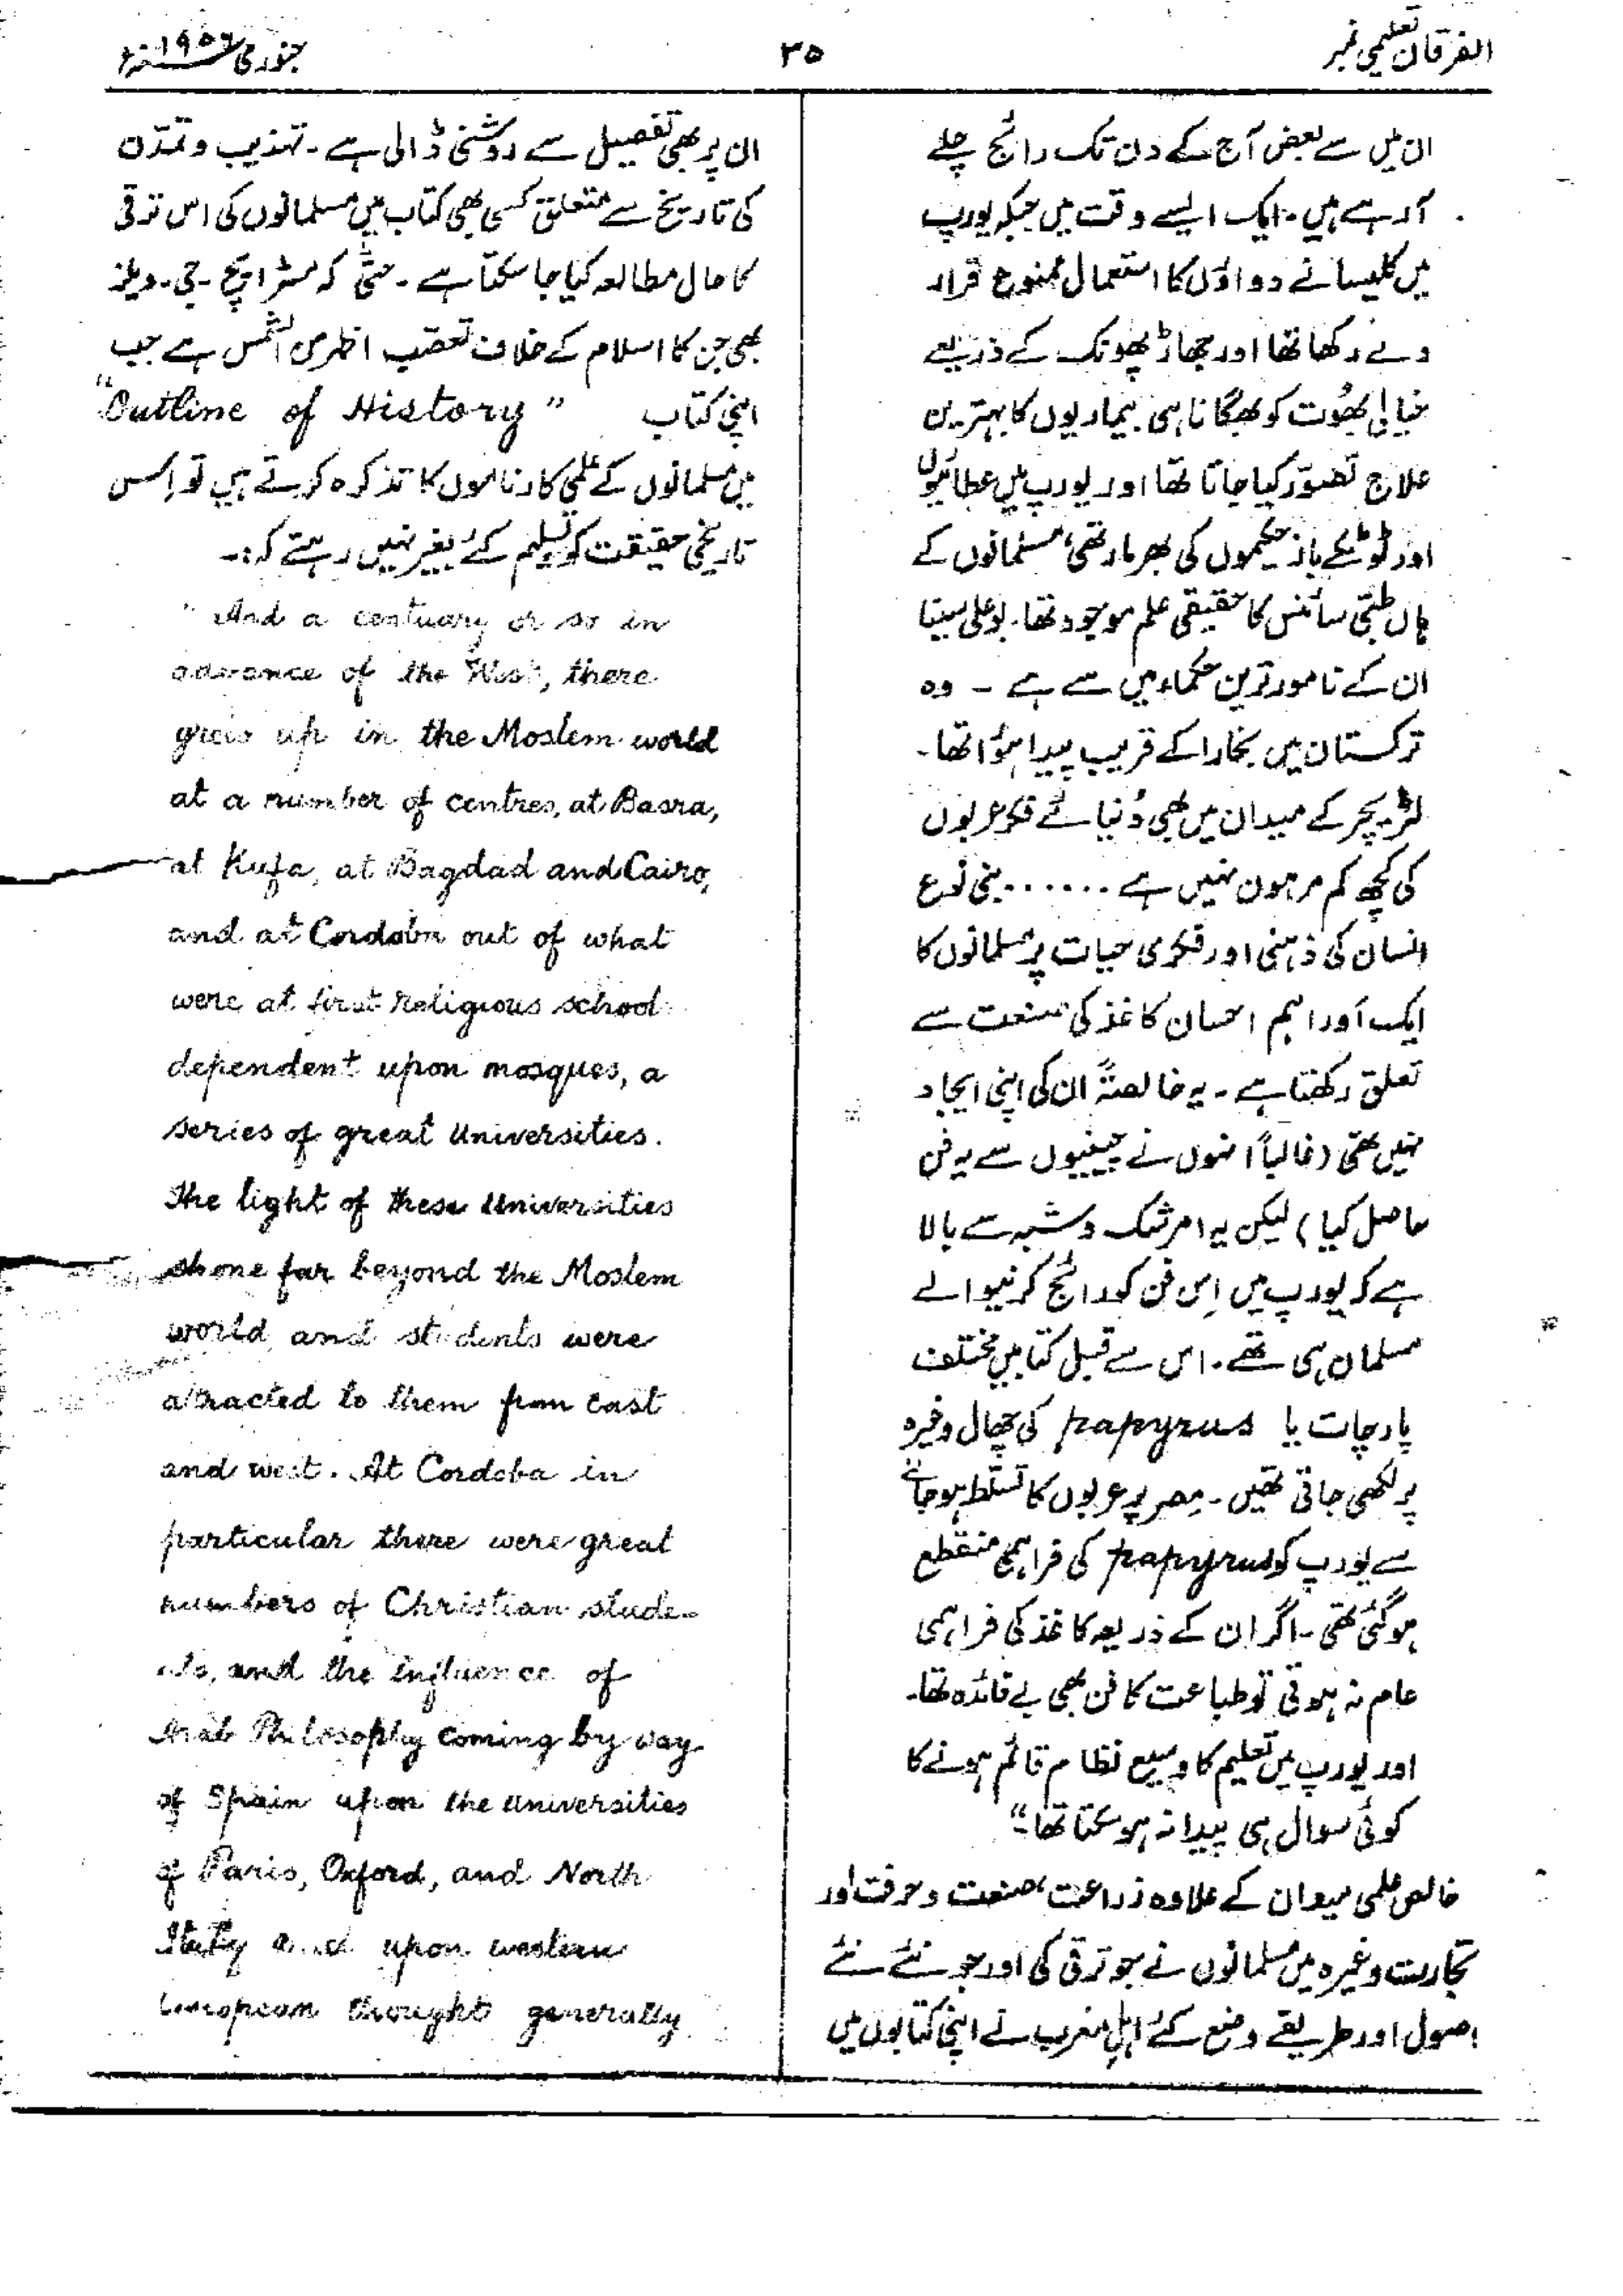 الفرقان تعلیمی نمبر
۳۵
جنوری ۱۹۵۶ء
ان میں سے بعض آج کے دن تک رائج چلے
آ رہے ہیں۔ ایک ایسے وقت میں جبکہ یورپ
میں کلیسا نے دواؤں کا استعمال ممنوع قرار
دے رکھا تھا اور جھاڑ پھونک کے ذریعے
خیالی بھُوت کو بھگانا ہی بیماریوں کا بہترین
علاج تصوّر کیا جاتا تھا اور یورپ میں عطائیوں
اور ٹوٹکے باز حکیموں کی بھرمار تھی، مسلمانوں کے
ہاں طبّی سائنس کا حقیقی علم موجود تھا۔ بوعلی سینا
ان کے نامور ترین حکماء میں سے ہے ۔ وہ
ترکستان میں بخارا کے قریب پیدا ہؤا تھا۔
لٹریچر کے میدان میں بھی دُنیائے فکر عربوں
کی کچھ کم مرہون نہیں ہے ...... بنی نوع
انسان کی ذہنی اور فکری حیات پر مسلمانوں کا
ایک اَور اہم احسان کاغذ کی صنعت سے
تعلق رکھتا ہے۔ یہ خالصتہً ان کی اپنی ایجاد
نہیں تھی (غالباً انہوں نے چینیوں سے یہ فن
حاصل کیا) لیکن یہ امر شک و شبہ سے بالا
ہے کہ یورپ میں اِس فن کو رائج کرنیوالے
مسلمان ہی تھے۔ اس سے قبل کتابیں مختلف
پارچات یا papyrus کی چھال وغیرہ
پر لکھی جاتی تھیں۔ مِصر پر عربوں کا تسلّط ہو جانے
سے یورپ کو papyrus کی فراہمی منقطع
ہو گئی تھی۔ اگر ان کے ذریعہ کاغذ کی فراہمی
عام نہ ہوتی تو طباعت کا فن بھی بے فائدہ تھا۔
اور یورپ میں تعلیم کا وسیع نظام قائم ہونے کا
کوئی سوال ہی پیدا نہ ہو سکتا تھا۔“
خالص علمی میدان کے علاوہ زراعت، صنعت و حرفت اور
تجارت وغیرہ میں مسلمانوں نے جو ترقی کی اور جو نئے نئے
اصول اور طریقے وضع کئے اہلِ مغرب نے اپنی کتابوں میں
ان پر بھی تفصیل سے روشنی ڈالی ہے۔ تہذیب و تمدّن
کی تاریخ سے متعلق کسی بھی کتاب میں مسلمانوں کی اس ترقی
کا حال مطالعہ کیا جا سکتا ہے۔ حتّٰی کہ مسٹر ایچ۔ جی۔ ویلز
بھی جن کا اسلام کے خلاف تعصّب اظہر من الشمس ہے جب
اپنی کتاب "Outline of History"
میں مسلمانوں کے علمی کارناموں کا تذکرہ کرتے ہیں تو اِس
تاریخی حقیقت کو تسلیم کئے بغیر نہیں رہتے کہ:۔
" And a centuary or so in
advance of the West, there
grew up in the Moslem world
at a number of centres, at Basra,
at Kufa, at Bagdad and Cairo,
and at Cordoba out of what
were at first religious school
dependent upon mosques, a
series of great Universities.
The light of these Universities
shone far beyond the Moslem
world and students were
attracted to them from east
and west. At Cordoba in
particular there were great
numbers of Christian stude-
nts, and the influence of
Arab Philosophy coming by way
of Spain upon the universities
of Paris, Oxford, and North
Italy and upon western
European thought generally